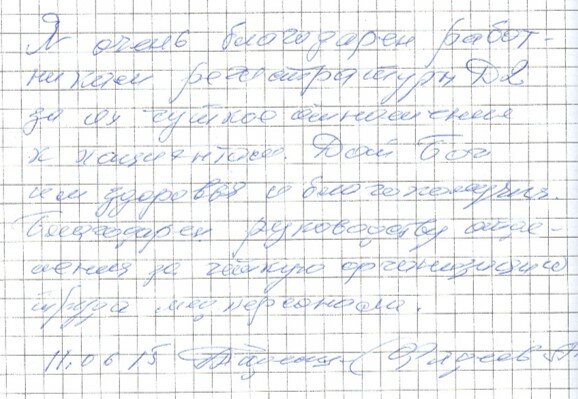 Я очень благодарен работ-
никам регистратуры Д2
за их чуткое отношение
к пациентам. Дай Бог
им здоровья и благополучия.
Благодарен руководству отде-
ления за чёткую организацию
труда мед персонала.
11.06 15 Пациент